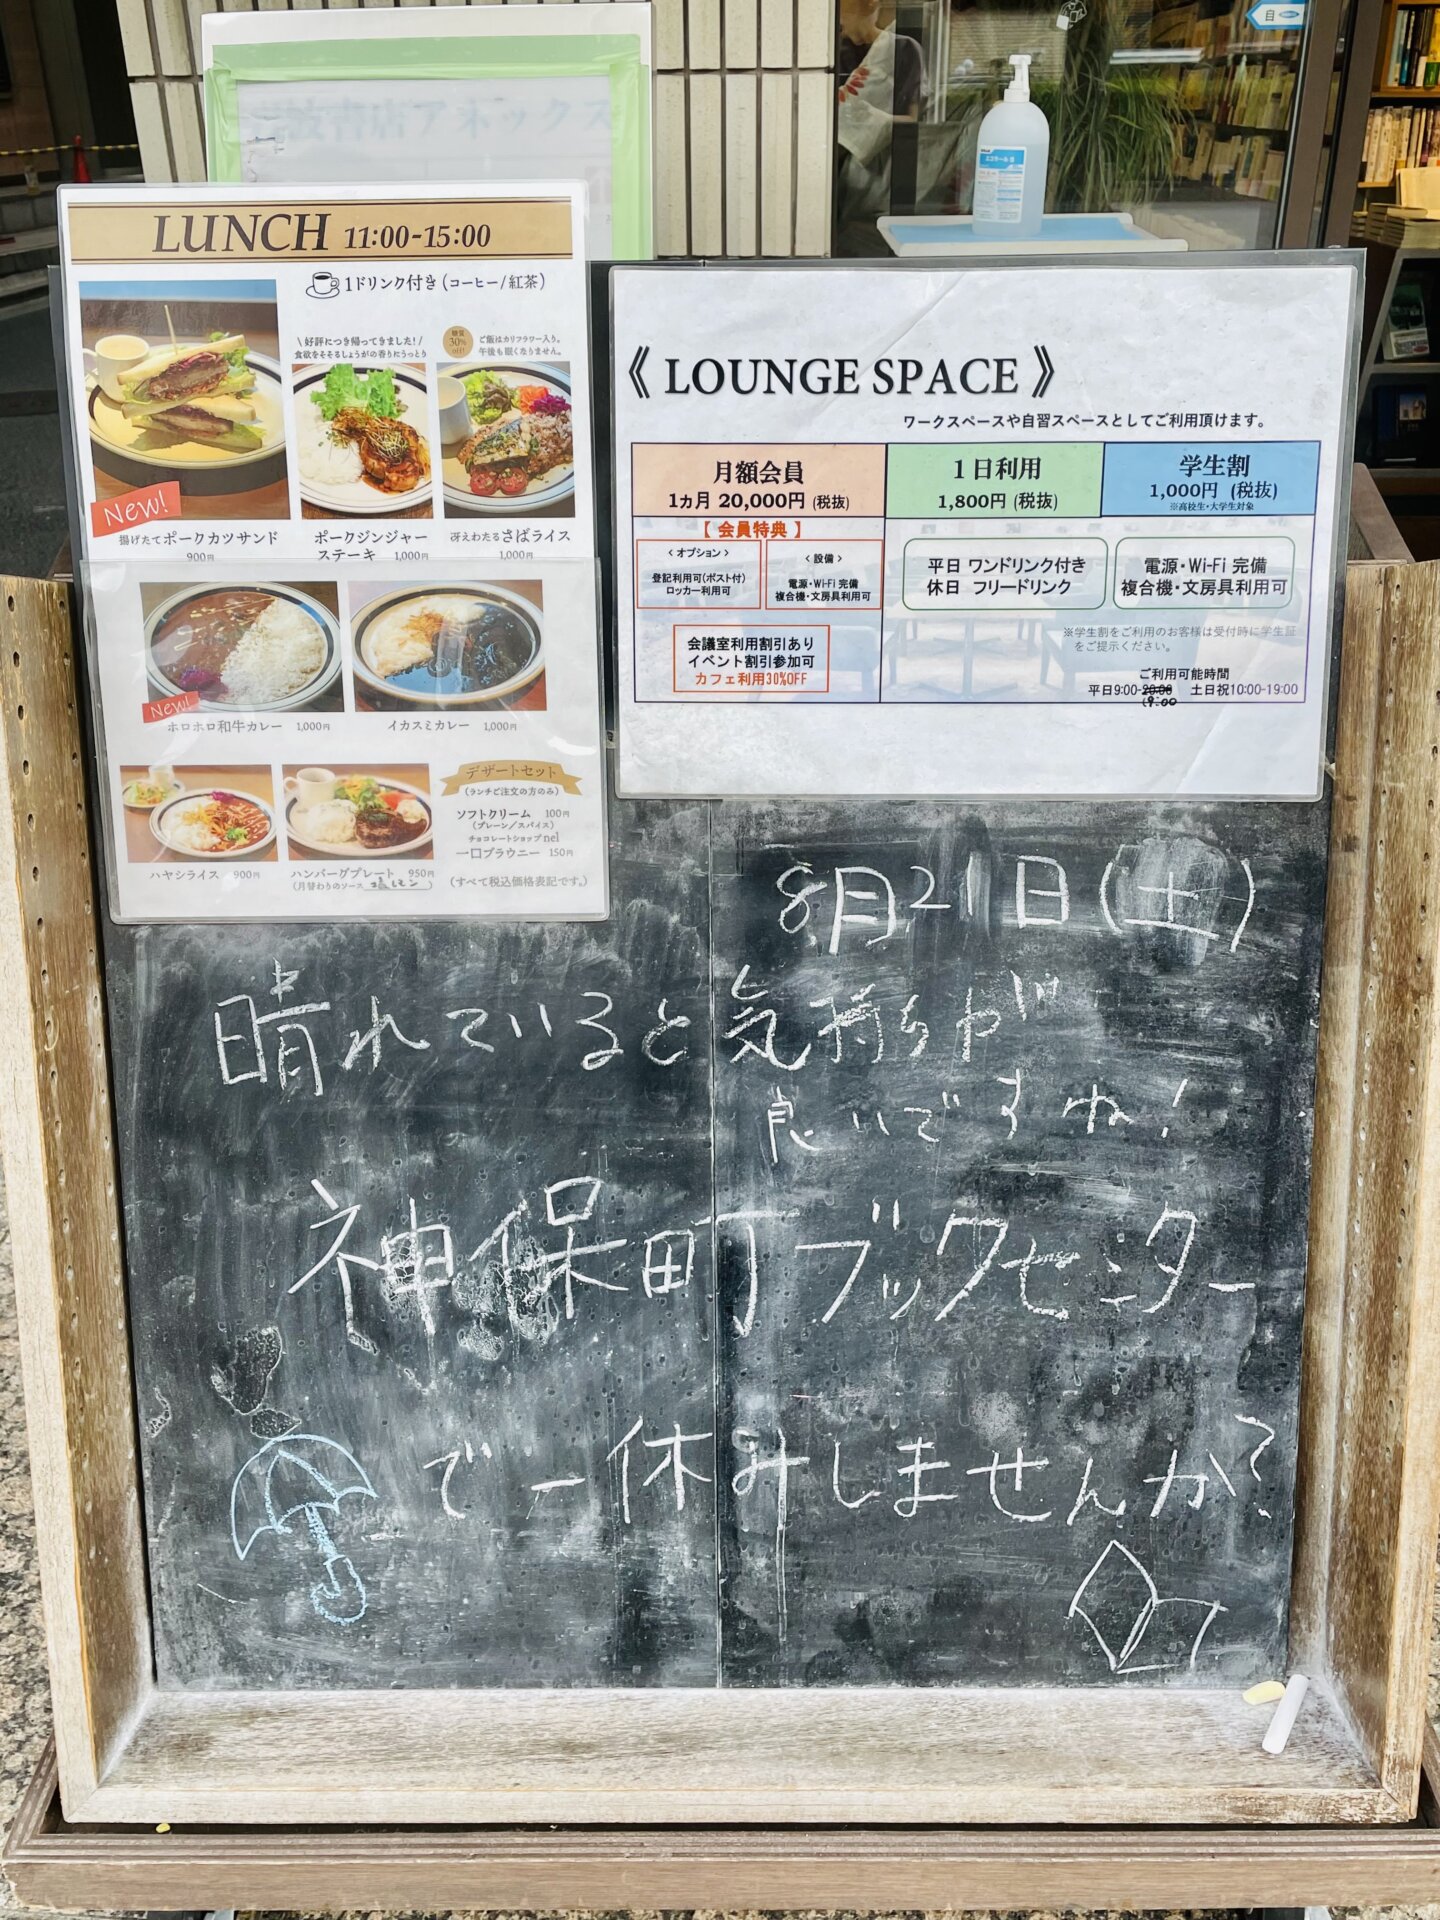 書店アネックス
LUNCH 11:00-15:00
1ドリンク付き(コーヒー/紅茶)
\好評につき帰ってきました!/
食欲をそそるしょうがの香りにうっとり
糖質
30%
off!
ご飯はカリフラワー入り。
午後も眠くなりません。
New!
揚げたてポークカツサンド
900円
ポークジンジャー
ステーキ 1,000円
冴えわたるさばライス
1,000円
New!
ホロホロ和牛カレー 1,000円
イカスミカレー 1,000円
ハヤシライス 900円
ハンバーグプレート 950円
(月替わりのソース 塩レモン)
デザートセット
(ランチご注文の方のみ)
ソフトクリーム 100円
(プレーン/スパイス)
チョコレートショップnel
一口ブラウニー 150円
(すべて税込価格表記です。)
《 LOUNGE SPACE 》
ワークスペースや自習スペースとしてご利用頂けます。
月額会員
1ヵ月 20,000円 (税抜)
【 会員特典 】
<オプション>
登記利用可(ポスト付)
ロッカー利用可
<設備>
電源・Wi-Fi 完備
複合機・文房具利用可
会議室利用割引あり
イベント割引参加可
カフェ利用30%OFF
1日利用
1,800円 (税抜)
学生割
1,000円 (税抜)
※高校生・大学生対象
平日 ワンドリンク付き
休日 フリードリンク
電源・Wi-Fi 完備
複合機・文房具利用可
※学生割をご利用のお客様は受付時に学生証
をご提示ください。
ご利用可能時間
平日9:00-20:00 土日祝10:00-19:00
19:00
8月21日(土)
晴れていると気持ちが
良いですね!
神保町ブックセンター
で一休みしませんか?